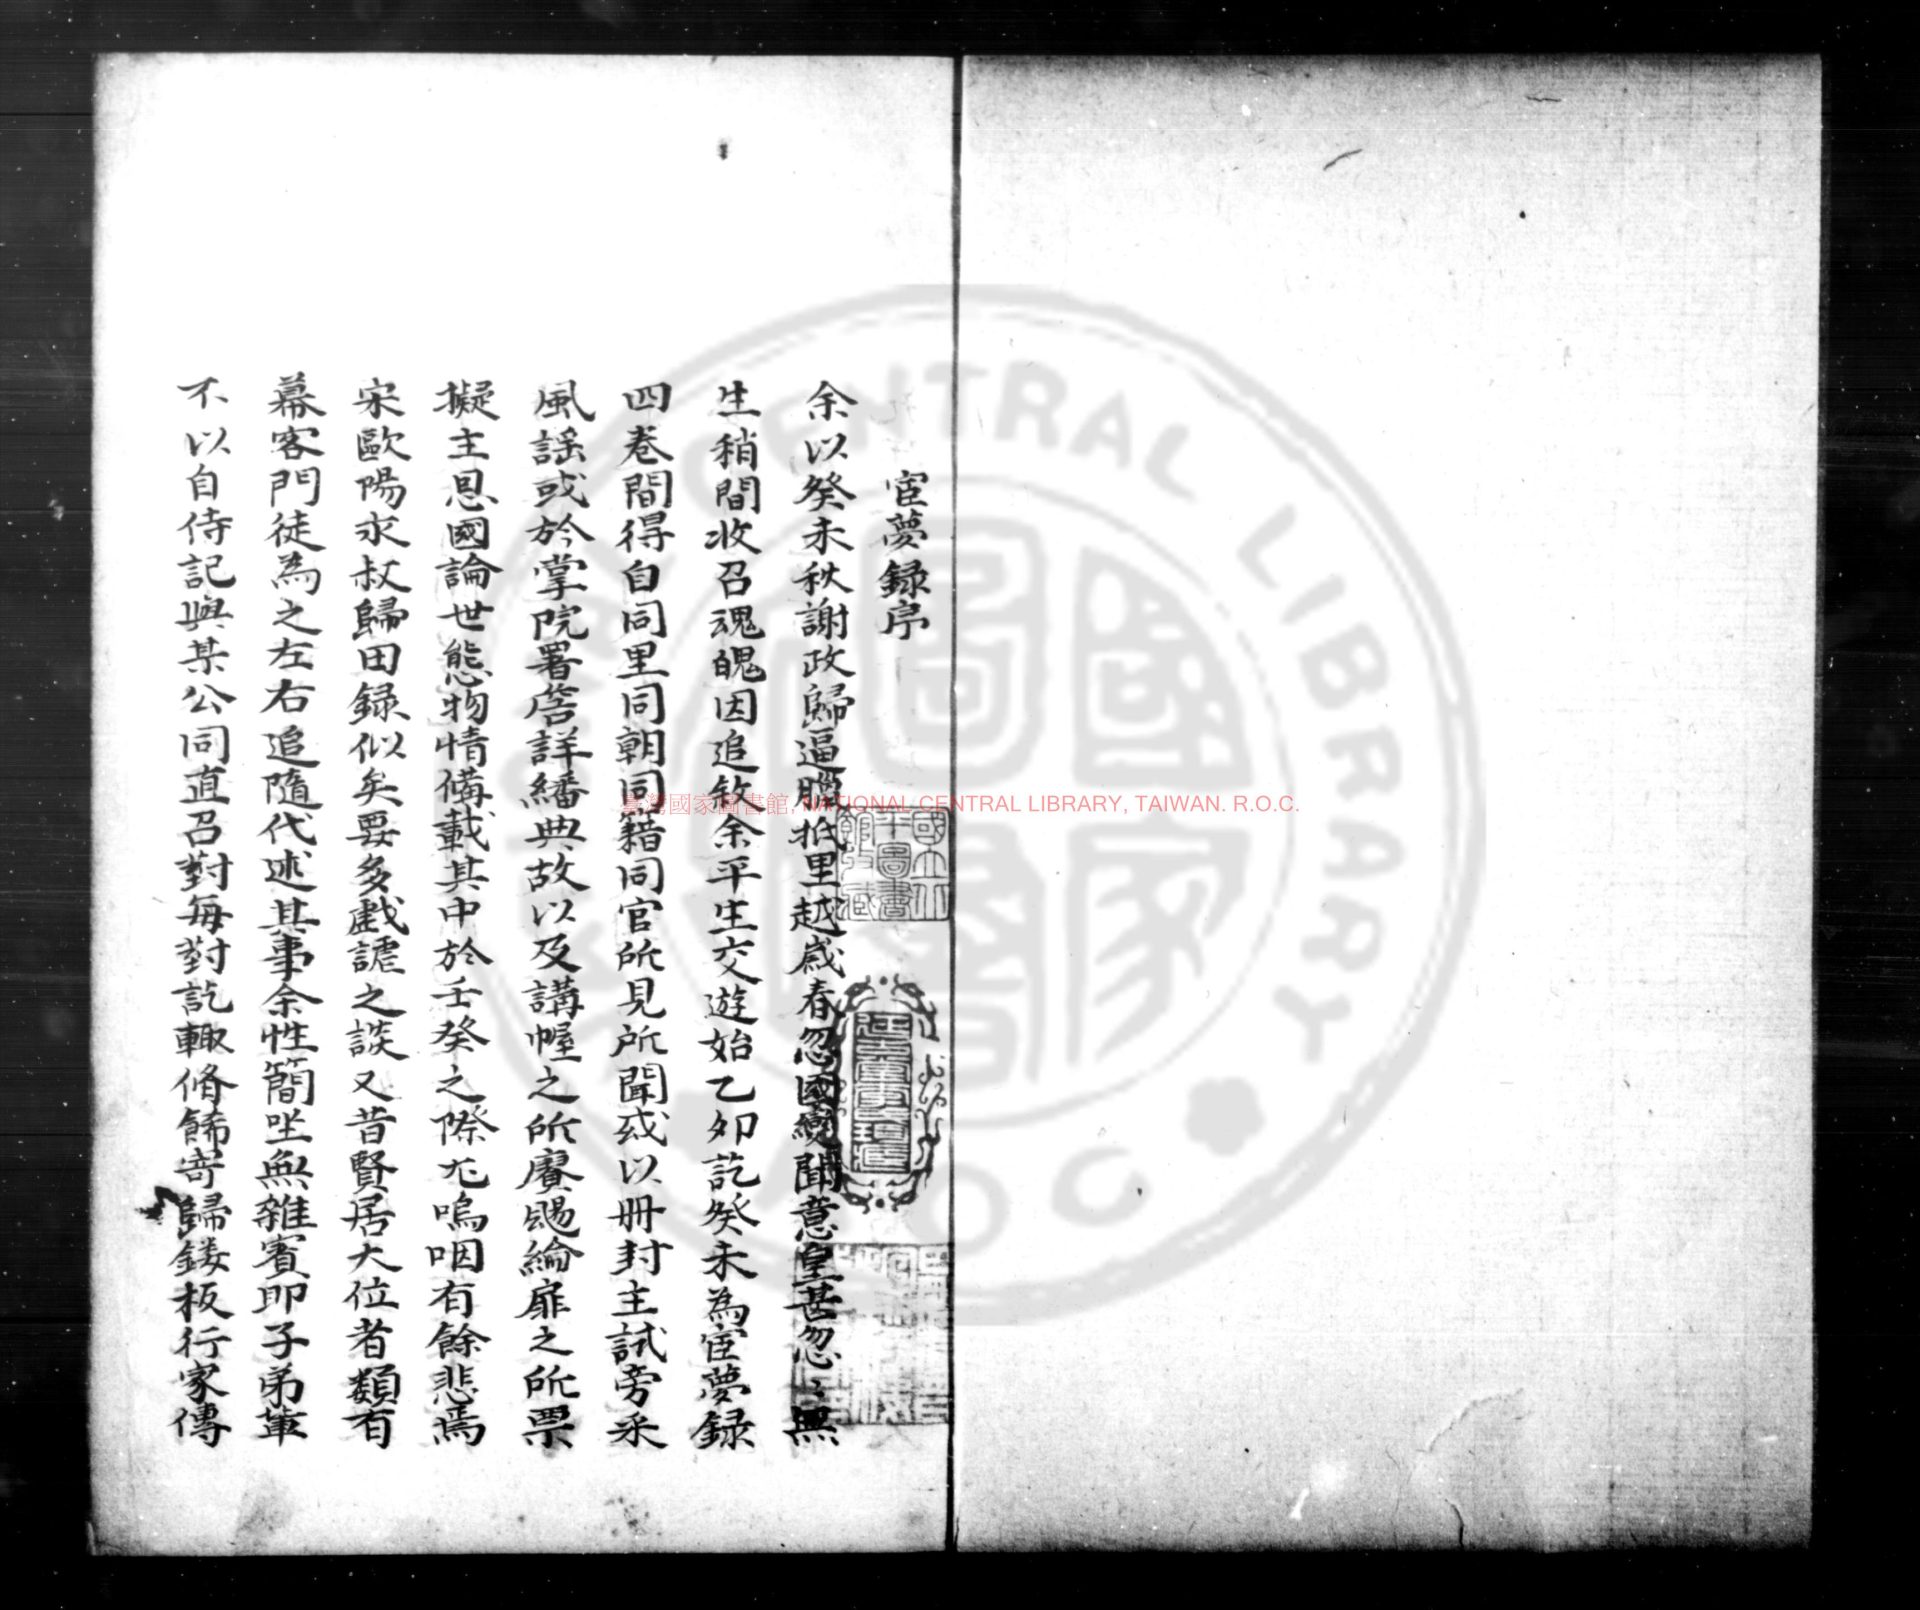 宦夢錄序
余以癸未秋謝政歸逼臘抵里越歲春忽國變聞意皇甚忽〻無
生稍間收召魂魄因追敘余平生交遊始乙卯訖癸未為宦夢錄
四卷間得自同里同朝同籍同官所見所聞或以冊封主試旁采
風謠或於掌院署詹詳繙典故以及講幄之所賡颺綸扉之所票
擬主恩國論世態物情備載其中於壬癸之際尤嗚咽有餘悲焉
宋歐陽永叔歸田錄似矣要多戲謔之談又昔賢居大位者類有
幕客門徒為之左右追隨代述其事余性簡坐無雜賓即子弟輩
不以自侍記與某公同直召對每對訖輒脩餙寄歸鋟板行家傳
臺灣國家圖書館, NATIONAL CENTRAL LIBRARY, TAIWAN. R.O.C.